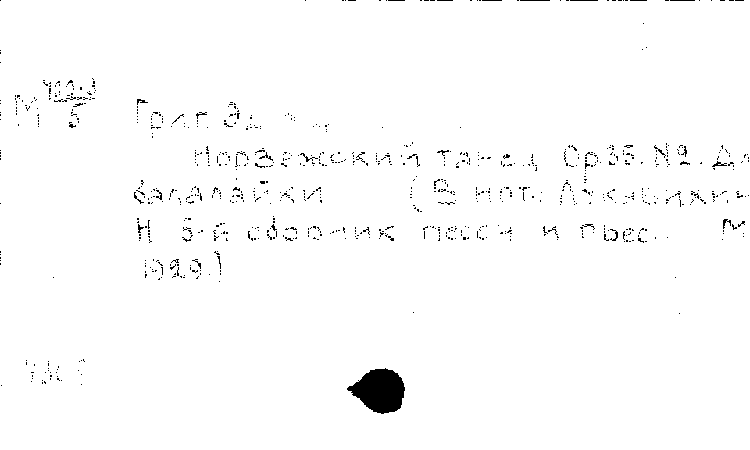 М 5 Григ Эд
Норвежский танец Op 35. N2. Дл
балалайки (В нот.: Лукавихин
Н 5-й сборник песен и пьес. М
1929.)